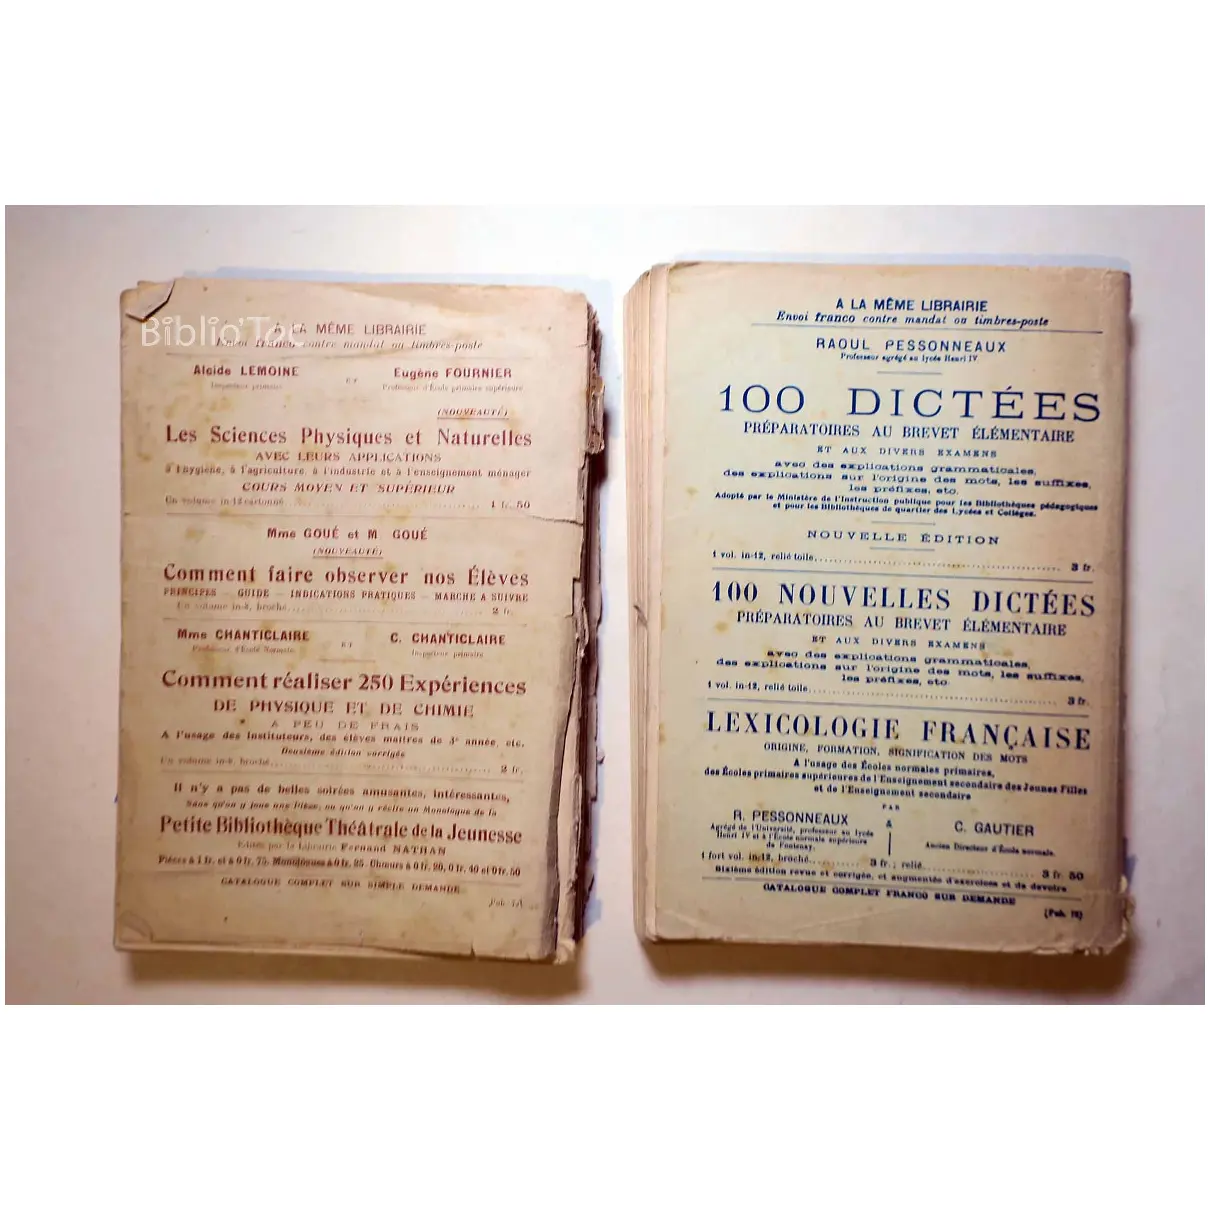 Biblio'Toc
A LA MÊME LIBRAIRIE
Envoi franco contre mandat ou timbres-poste
Alcide LEMOINE ET Eugène FOURNIER
Inspecteur primaire Professeur d'École primaire supérieure
(NOUVEAUTÉ)
Les Sciences Physiques et Naturelles
AVEC LEURS APPLICATIONS
à l'hygiène, à l'agriculture, à l'industrie et à l'enseignement ménager
COURS MOYEN ET SUPÉRIEUR
Un volume in-12 cartonné 1 fr. 50
Mme GOUÉ et M GOUÉ
(NOUVEAUTÉ)
Comment faire observer nos Élèves
PRINCIPES - GUIDE - INDICATIONS PRATIQUES - MARCHE A SUIVRE
Un volume in-8, broché 2 fr.
Mme CHANTICLAIRE ET C. CHANTICLAIRE
Professeur d'École Normale Inspecteur primaire
Comment réaliser 250 Expériences
DE PHYSIQUE ET DE CHIMIE
A PEU DE FRAIS
A l'usage des Instituteurs, des élèves maîtres de 3e année, etc.
Deuxième édition corrigée
Un volume in-8, broché 2 fr.
Il n'y a pas de belles soirées amusantes, intéressantes,
Sans qu'on y joue une Pièce, ou qu'on y récite un Monologue de la
Petite Bibliothèque Théâtrale de la Jeunesse
Éditée par la Librairie Fernand NATHAN
Pièces à 1 fr. et à 0 fr. 75. Monologues à 0 fr. 25. Chœurs à 0 fr. 20, 0 fr. 40 et 0 fr. 50
CATALOGUE COMPLET SUR SIMPLE DEMANDE
A LA MÊME LIBRAIRIE
Envoi franco contre mandat ou timbres-poste
RAOUL PESSONNEAUX
Professeur agrégé au lycée Henri IV
100 DICTÉES
PRÉPARATOIRES AU BREVET ÉLÉMENTAIRE
ET AUX DIVERS EXAMENS
avec des explications grammaticales,
des explications sur l'origine des mots, les suffixes,
les préfixes, etc.
Adopté par le Ministère de l'Instruction publique pour les Bibliothèques pédagogiques
et pour les Bibliothèques de quartier des Lycées et Collèges.
NOUVELLE ÉDITION
1 vol. in-12, relié toile 3 fr.
100 NOUVELLES DICTÉES
PRÉPARATOIRES AU BREVET ÉLÉMENTAIRE
ET AUX DIVERS EXAMENS
avec des explications grammaticales,
des explications sur l'origine des mots, les suffixes,
les préfixes, etc
1 vol. in-12, relié toile 3 fr.
LEXICOLOGIE FRANÇAISE
ORIGINE, FORMATION, SIGNIFICATION DES MOTS
A l'usage des Écoles normales primaires,
des Écoles primaires supérieures de l'Enseignement secondaire des Jeunes Filles
et de l'Enseignement secondaire
PAR
R. PESSONNEAUX & C. GAUTIER
Agrégé de l'Université, professeur au lycée
Henri IV et à l'École normale supérieure
de Fontenay.
Ancien Directeur d'École normale.
1 fort vol. in-12, broché 3 fr.; relié 3 fr. 50
Sixième édition revue et corrigée, et augmentée d'exercices et de devoirs
CATALOGUE COMPLET FRANCO SUR DEMANDE